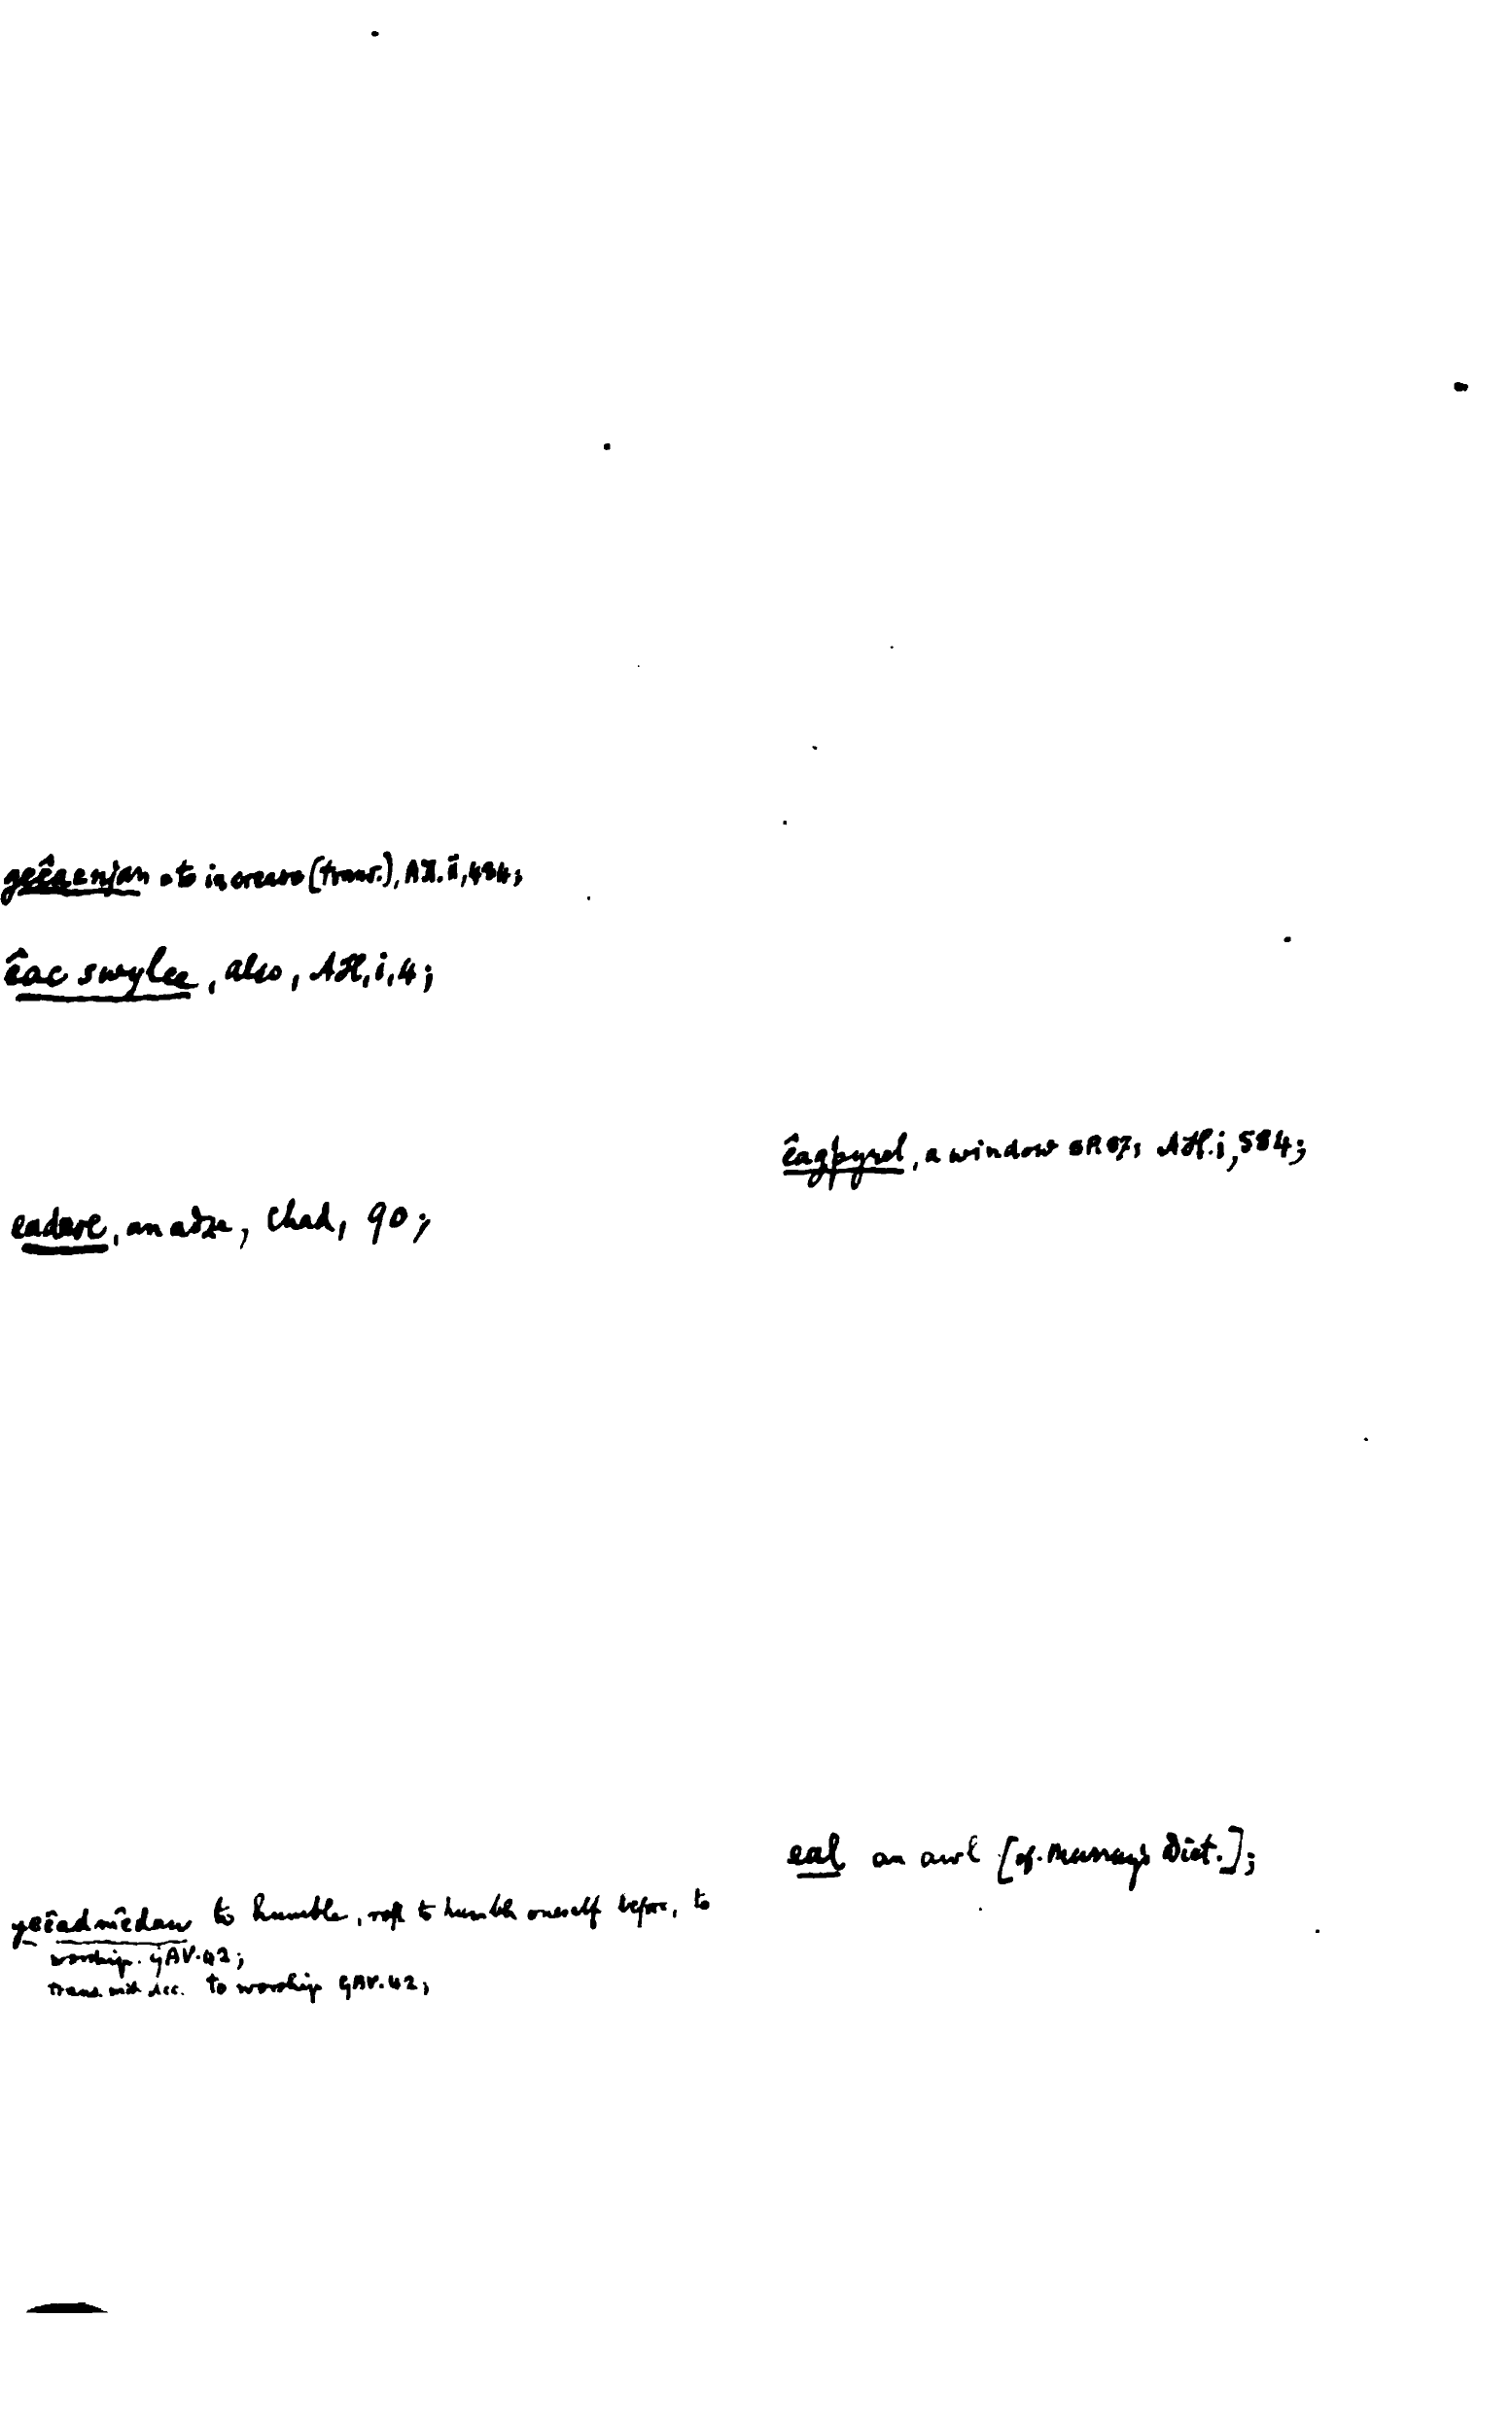 geêacnjan to increase (trans.), AH. ii, 484;
êac swylce, also, AH, i, 4;
êagþyrel, a window AH. i, 584;
eadese, an adze, Chad, 90;
eal an awl [cf. Murray's Dict.];
geêadmêdan to humble, refl to humble oneself before, to
worship. GAV. 42;
trans. with acc. to worship GAV. 42;